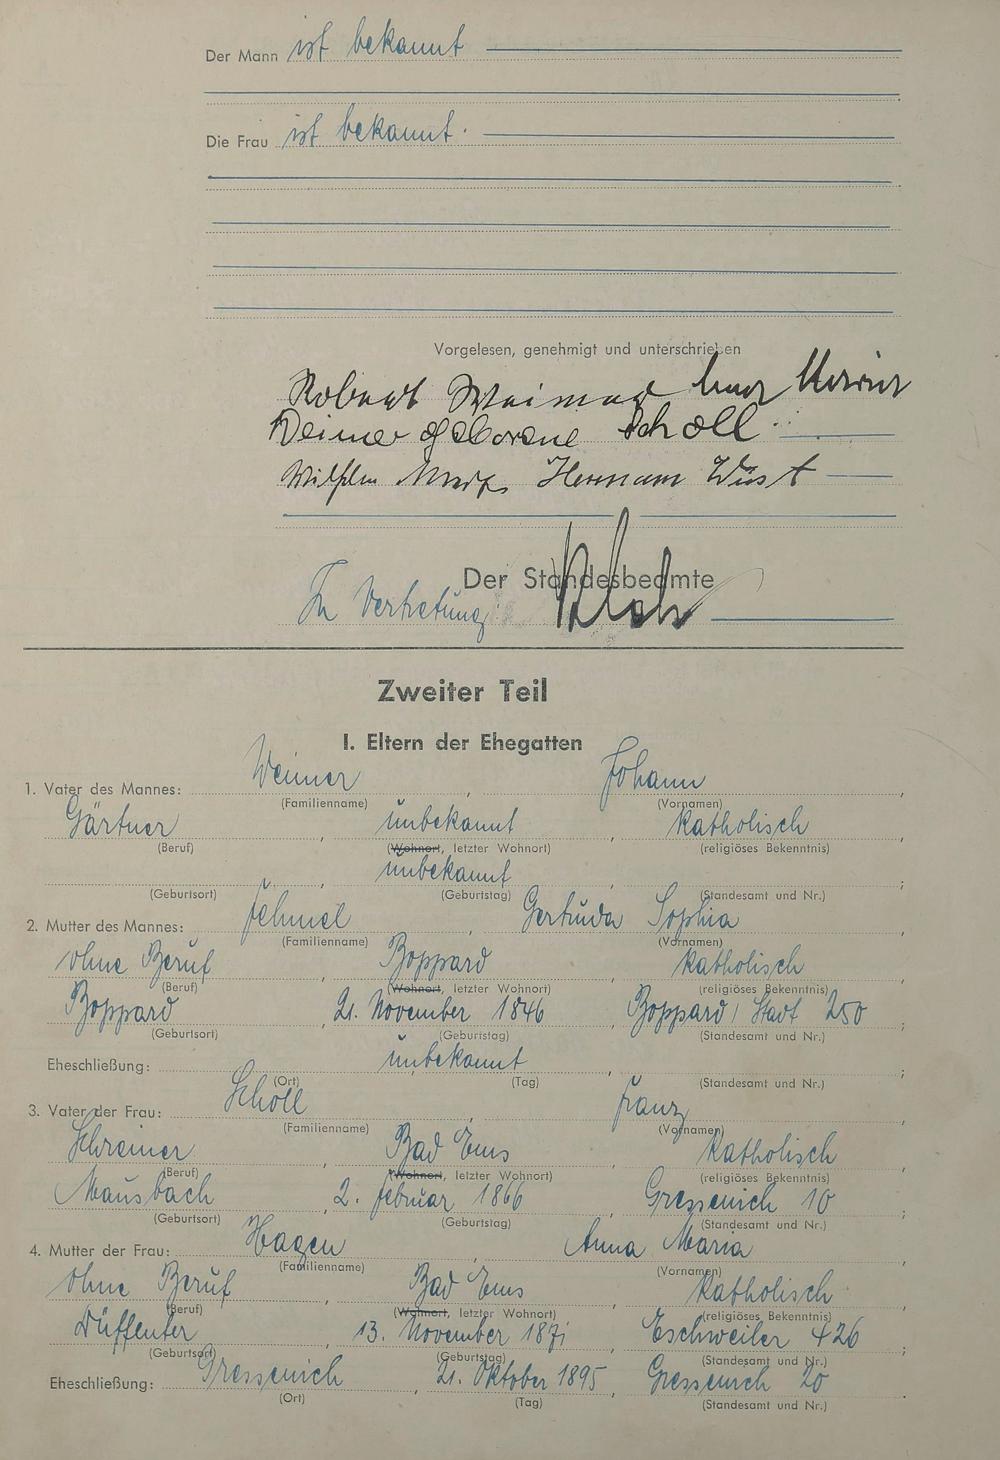 Der Mann ist bekannt
Die Frau ist bekannt.
Vorgelesen, genehmigt und unterschrieben
Robert Weimer
Weimer geborene Scholl
Wilhelm Hermann Wüst
Der Standesbeamte
In Vertretung:
Zweiter Teil
I. Eltern der Ehegatten
1. Vater des Mannes: Weimer, Johann,
(Familienname) (Vornamen)
Gärtner, unbekannt, katholisch,
(Beruf) (Wohnort, letzter Wohnort) (religiöses Bekenntnis)
, unbekannt, ;
(Geburtsort) (Geburtstag) (Standesamt und Nr.)
2. Mutter des Mannes: , Gertruda Sophia,
(Familienname) (Vornamen)
ohne Beruf, Boppard, katholisch,
(Beruf) (Wohnort, letzter Wohnort) (religiöses Bekenntnis)
Boppard, 21. November 1846, Boppard/Stadt 250;
(Geburtsort) (Geburtstag) (Standesamt und Nr.)
Eheschließung: unbekannt, ;
(Ort) (Tag) (Standesamt und Nr.)
3. Vater der Frau: Scholl, Franz,
(Familienname) (Vornamen)
Schreiner, Bad Ems, katholisch,
(Beruf) (Wohnort, letzter Wohnort) (religiöses Bekenntnis)
Mausbach, 2. Februar 1866, Gressenich 10;
(Geburtsort) (Geburtstag) (Standesamt und Nr.)
4. Mutter der Frau: Hagen, Anna Maria,
(Familienname) (Vornamen)
ohne Beruf, Bad Ems, katholisch,
(Beruf) (Wohnort, letzter Wohnort) (religiöses Bekenntnis)
, 13. November 1871, Eschweiler 426;
(Geburtsort) (Geburtstag) (Standesamt und Nr.)
Eheschließung: Gressenich, 21. Oktober 1895, Gressenich 20,
(Ort) (Tag) (Standesamt und Nr.)